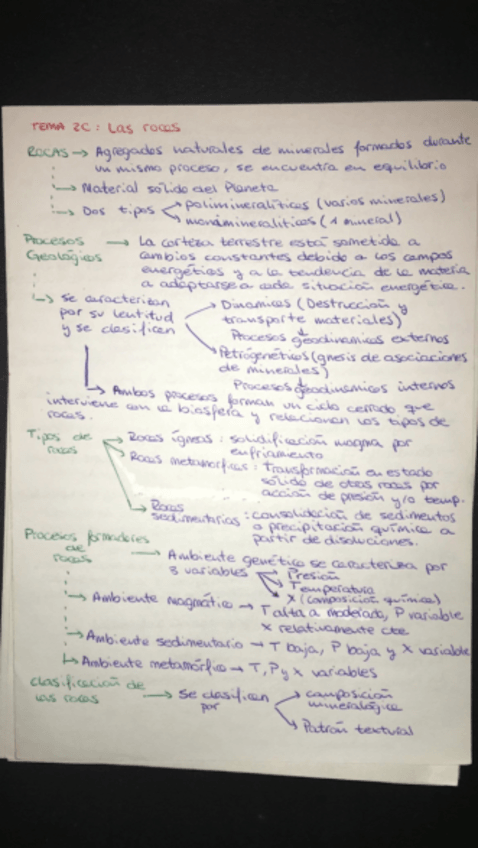 TEMA 2C: Las rocas
ROCAS → Agregados naturales de minerales formados durante
un mismo proceso, se encuentra en equilibrio
→ Material sólido del Planeta
→ Dos tipos → polimineralíticas (varios minerales)
→ monominerálíticas (1 mineral)
Procesos Geológicos → La corteza terrestre está sometida a
cambios constantes debido a los campos
energéticos y a la tendencia de la materia
a adaptarse a cada situación energética.
→ se caracterizan → Dinámicos (Destrucción y
por su lentitud transporte materiales)
y se clasifican ↓
Procesos geodinámicos externos
→ Petrogenéticos (gnesis de asociaciones
de minerales)
↓
Procesos geodinámicos internos
→ Ambos procesos forman un ciclo cerrado que
interviene con la biosfera y relacionan los tipos de
rocas.
Tipos de rocas → Rocas ígneas: solidificación magma por
enfriamiento
→ Rocas metamórficas: transformación en estado
sólido de otras rocas por
acción de presión y/o temp.
→ Rocas
sedimentarias: consolidación de sedimentos
o precipitación química a
partir de disoluciones.
Procesos formadores de rocas → Ambiente genético se caracteriza por
3 variables → Presión
→ Temperatura
→ X (composición química)
→ Ambiente magmático → T alta a moderada, P variable
X relativamente cte
→ Ambiente sedimentario → T baja, P baja y X variable
→ Ambiente metamórfico → T, P y X variables
clasificación de las rocas → se clasifican por → composición
mineralógica
→ Patrón textural